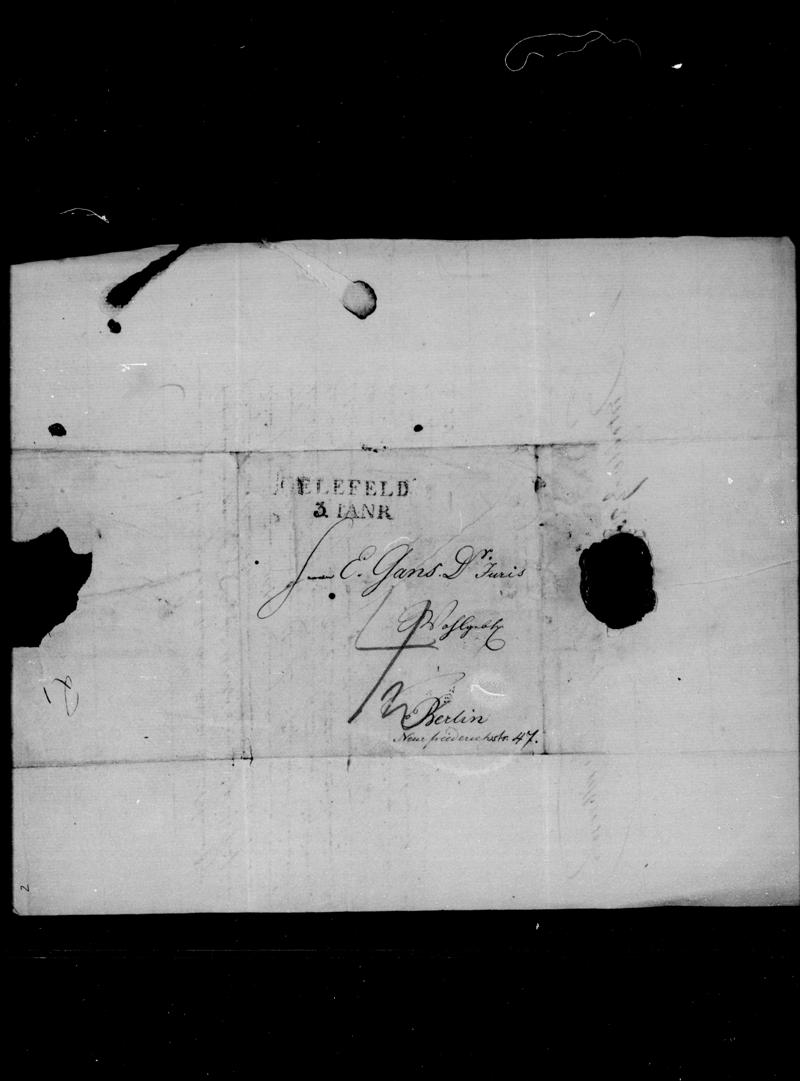 ELEFELD
3. IANR
E. Gans. Dr. Juris
Wohlgeb
Berlin
Neue friederichsstr. 47.
2